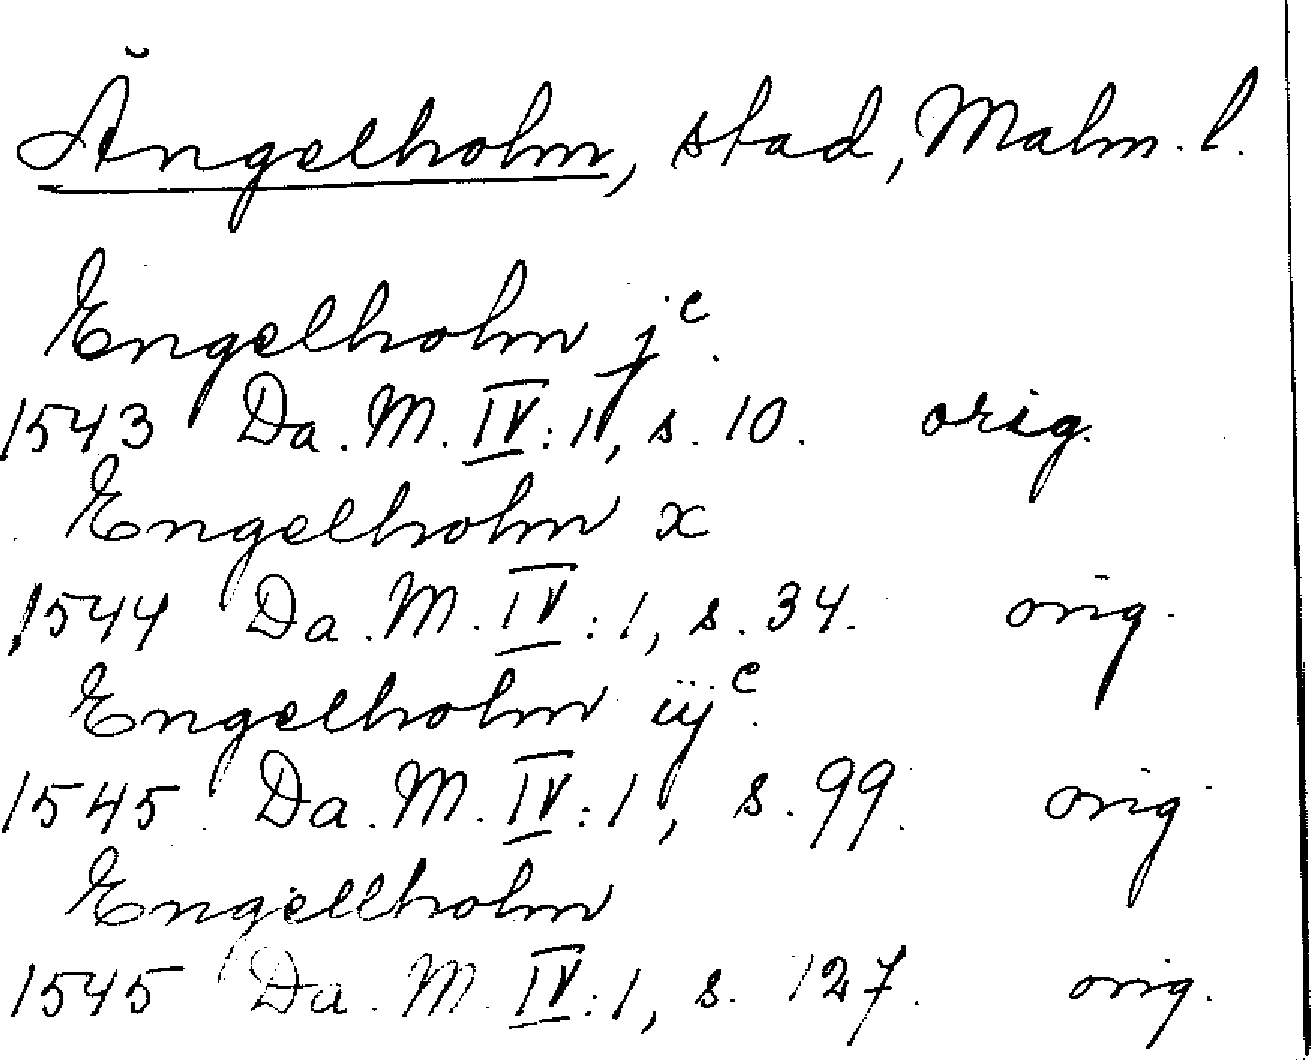 Ängelholm, stad, Malm. l.
Engelholm jc.
1543 Da. M. IV:1, s. 10. orig.
Engelholm x
1544 Da. M. IV:1, s. 34. orig.
Engelholm iijc.
1545 Da. M. IV:1, s. 99. orig.
Engellholm
1545 Da. M. IV:1, s. 127. orig.